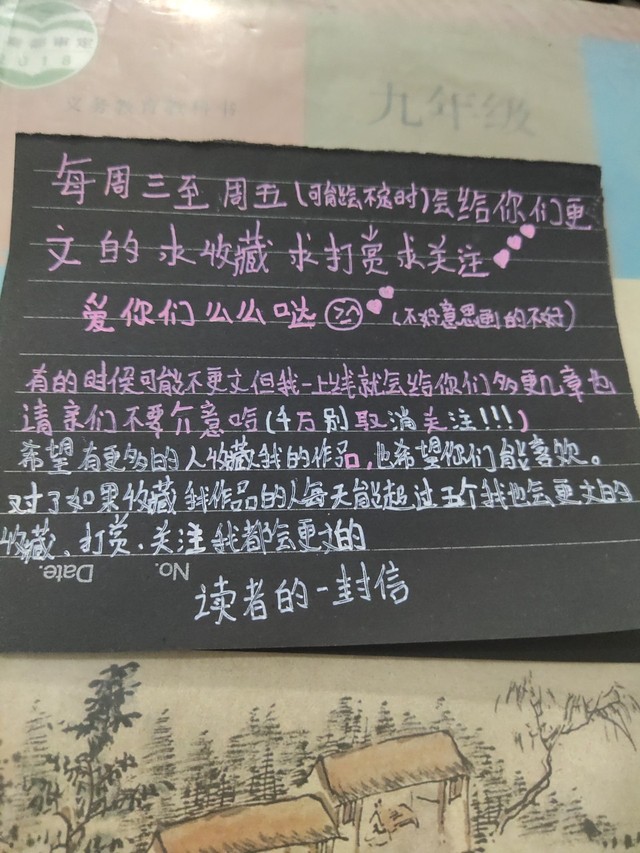 2018
义务教育教科书
九年级
每周三至周五(可能会不定时)会给你们更
文的求收藏求打赏求关注
爱你们么么哒(不好意思画的不好)
有的时候可能不更文但我一上线就会给你们多更几章也
请亲们不要介意哈(4万别取消关注!!!)
希望有更多的人收藏我的作品,也希望你们能喜欢。
对了如果收藏我作品的人每天能超过五个我也会更文的
收藏、打赏、关注我都会更文的
No.
Date.
读者的一封信